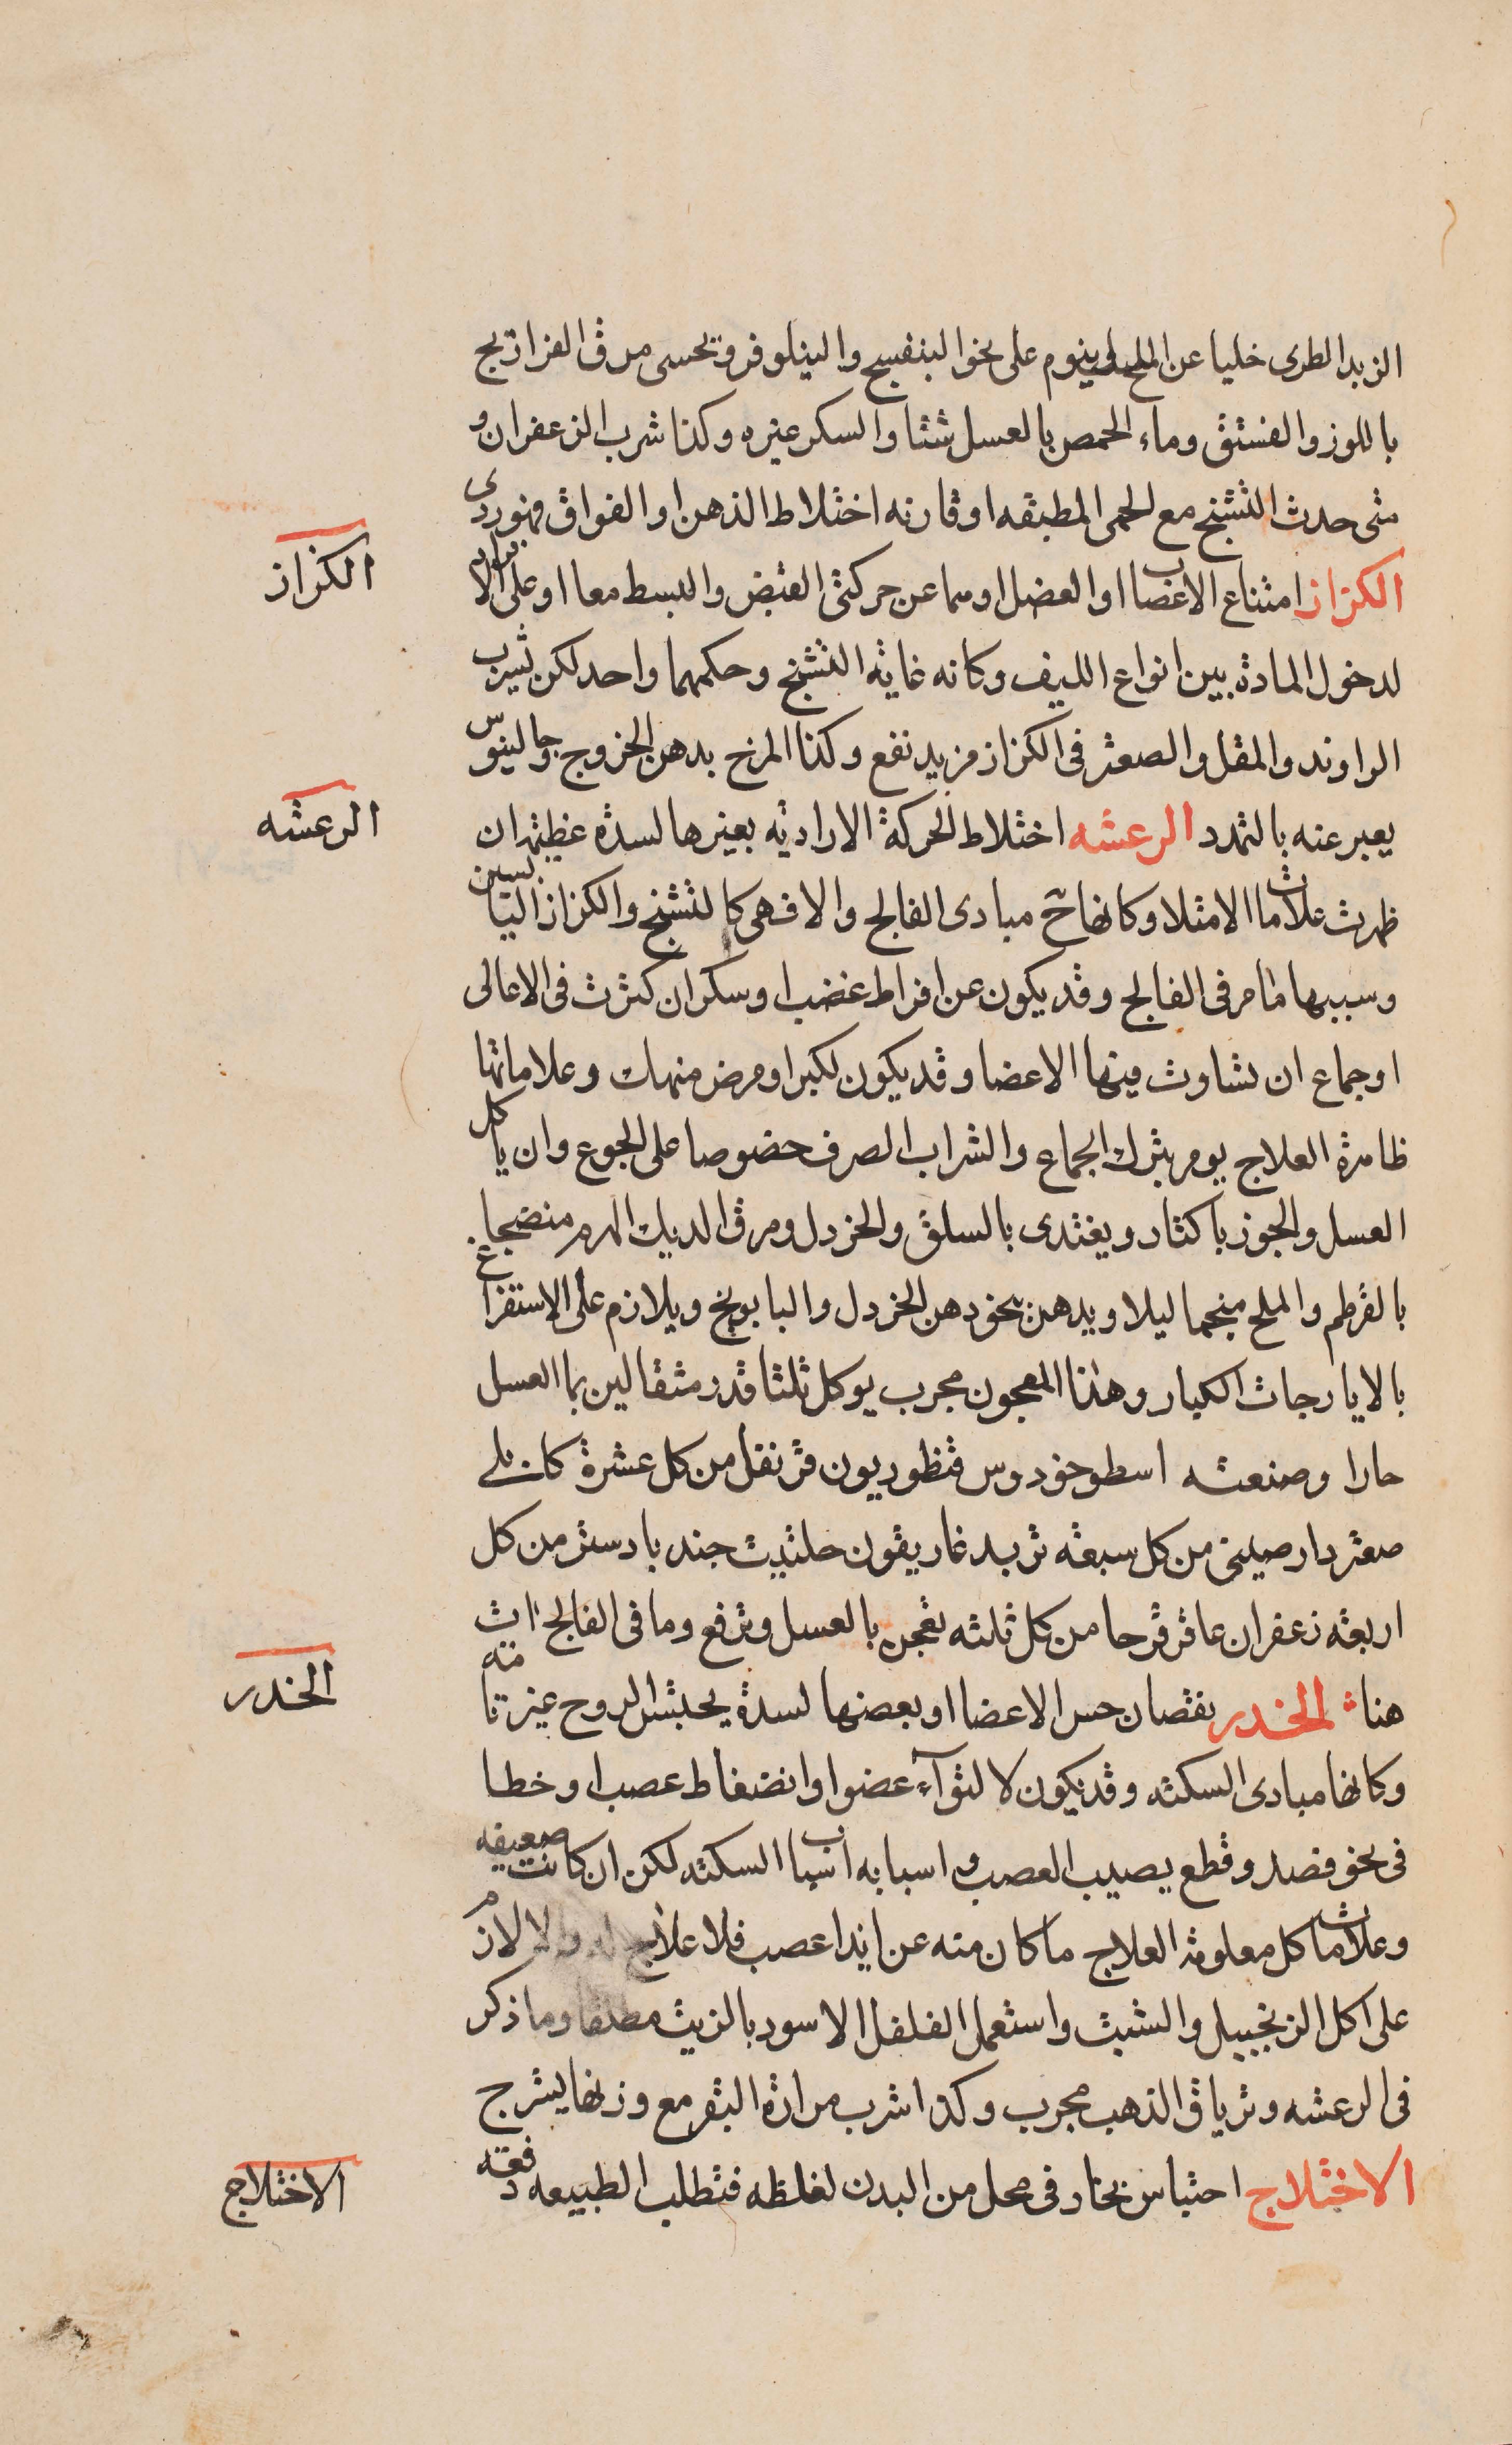 الزبد الطرى خليا عن الملح وينوم على نحو البنفسج والنيلوفر ويحسى مرق الفراريج
باللوز والفستق وماء الحمص بالعسل شتا والسكر غيره وكذا شرب الزعفران و
متى حدث التشنج مع الحمى المطبقه او قارنه اختلاط الذهن او الفواق فهو ردى
الكزاز امتناع الاعصاب او العضل او هما عن حركتى القبض والبسط معا او على الانفراد
لدخول المادة بين انواع الليف وكانه غاية التشنج وحكمهما واحد لكن لشرب
الراوند والمقل والصعتر فى الكزاز مزيد نفع وكذا المرخ بدهن الخروج وجالينوس
يعبر عنه بالتمدد الرعشه اختلاط الحركة الارادية بغيرها لسدة عظيمة ان
ظهرت علامات الامتلا وكانها ح مبادى الفالج والا فهى كالتشنج والكزاز اليابسين
وسببها ما مر فى الفالج وقد يكون عن افراط غضب او سكر ان كثرت فى الاعالى
او جماع ان تساوت فيها الاعضا وقد يكون لكبر او مرض منهك وعلاماتها
ظاهرة العلاج يومر بترك الجماع والشراب الصرف خصوصا على الجوع وان ياكل
العسل والجوز باكثار ويغتدى بالسلق والخردل ومرق الديك الهرم منضجا
بالقرطم والملح منجما ليلا ويدهن بنحو دهن الخردل والبابونج ويلازم على الاستفراغ
بالايارجات الكبار وهذا المعجون مجرب يوكل ثلثا قدر مثقالين بما العسل
حارا وصنعته اسطوخودوس قنظوريون قرنفل من كل عشرة كابلى
صعتر دارصينى من كل سبعة تربد غاريقون حلتيت جندبادستر من كل
اربعة زعفران عاقرقرحا من كل ثلثه تعجن بالعسل وترفع وما فى الفالج ات
هنا الخدر نقصان حس الاعضا او بعضها لسدة يحبس الروح غير تامة
وكانها مبادى السكته وقد يكون لا لتوآء عضو او انضغاط عصب او خطا
فى نحو فصد وقطع يصيب العصب واسبابه اسباب السكته لكن ان كانت ضعيفه
وعلامات كل معلومة العلاج ما كان منه عن ايذا عصب فلا علاج له والا لازم
على اكل الزنجبيل والشبث واستعمل الفلفل الاسود بالزيت مطلقا وما ذكر
فى الرعشه وترياق الذهب مجرب وكذا شرب مرارة البقر مع وزنها يشرج
الاختلاج احتباس بخار فى محل من البدن لغلظه فتطلب الطبيعه دفعه
الكزاز
الرعشه
الخدر
الاختلاج